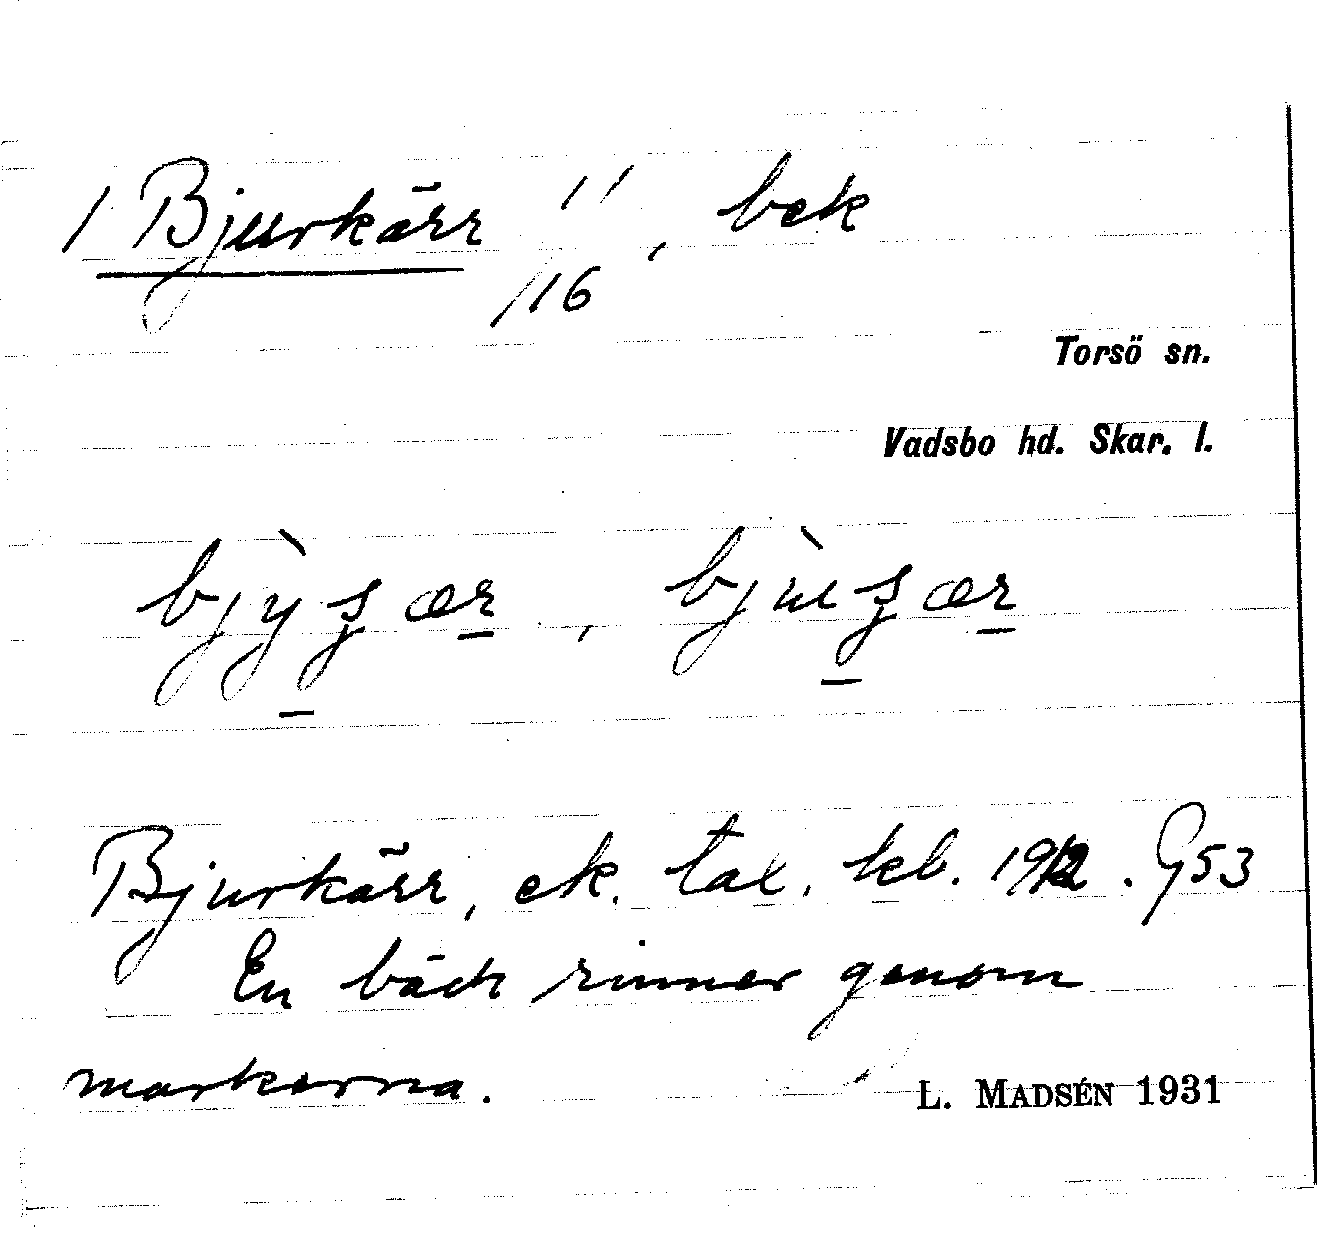 / Bjurkärr 1/16 1/, bek
Torsö sn.
Vadsbo hd. Skar. l.
bjỳʂær, bjùʂær
Bjurkärr, ek. tax. kb. 1912. G53
En bäck rinner genom
markerna.
L. MADSÉN 1931